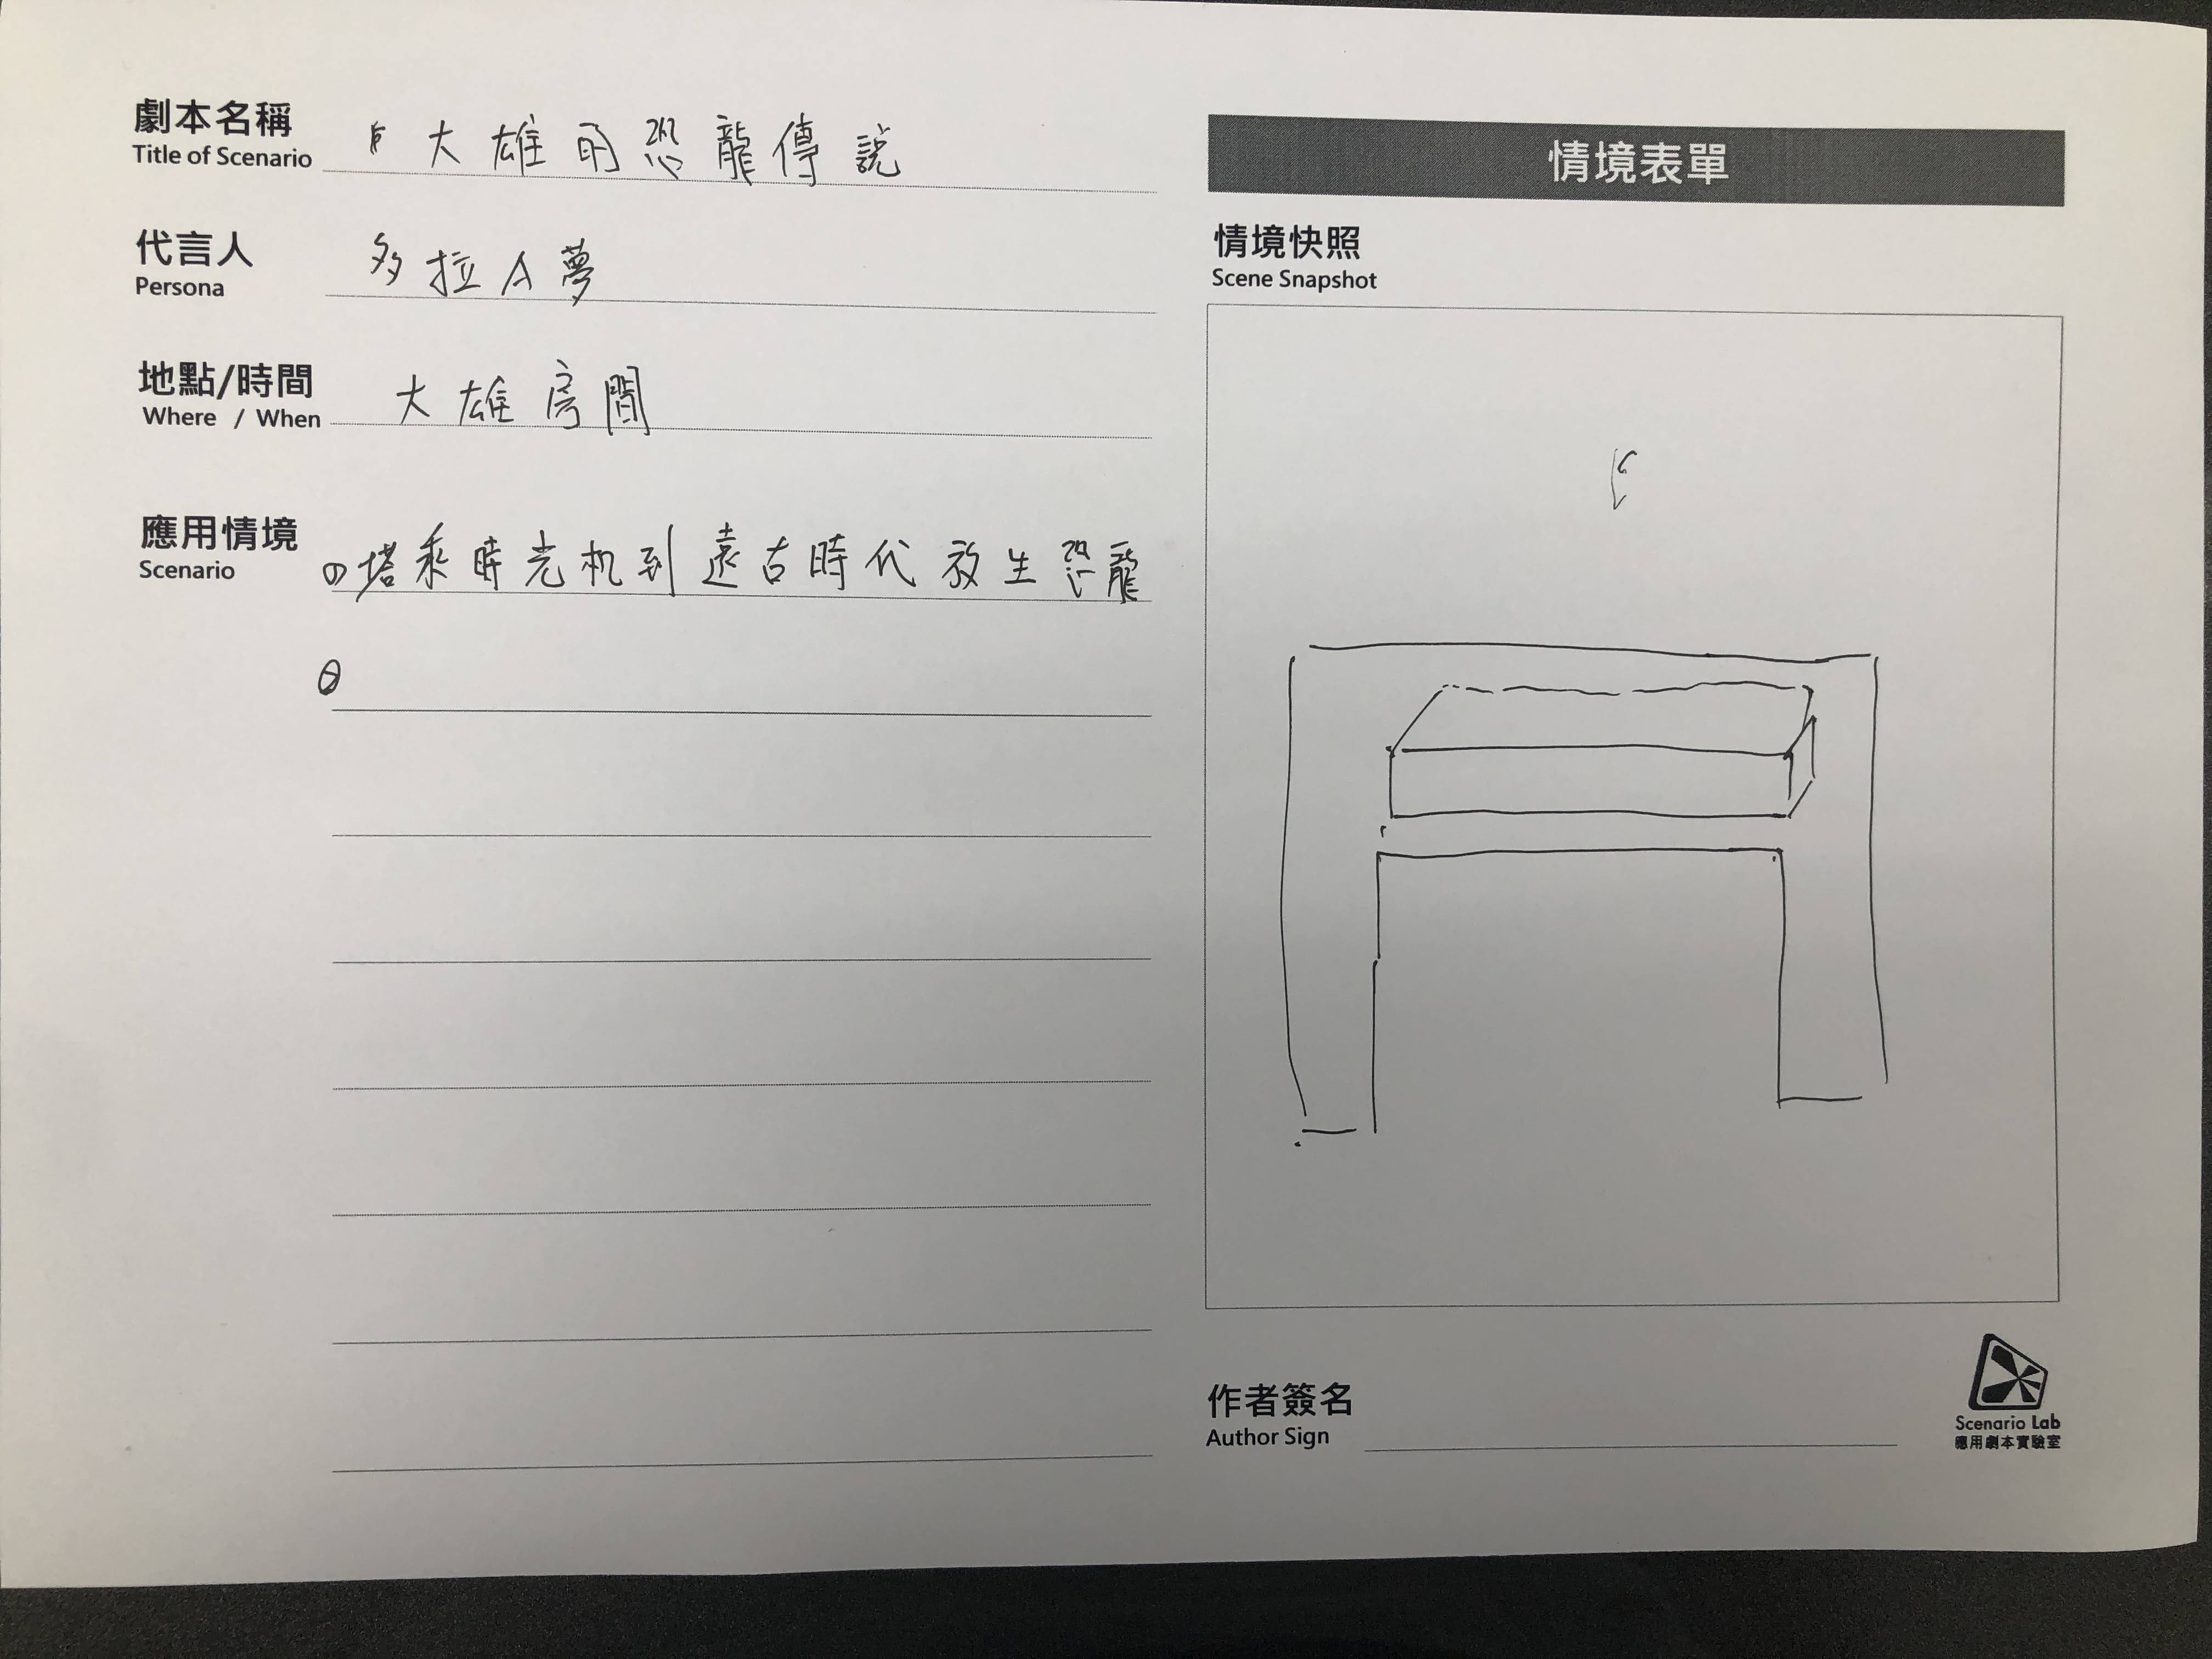 劇本名稱
Title of Scenario
大雄的恐龍傳說
代言人
Persona
多拉A夢
地點/時間
Where / When
大雄房間
應用情境
Scenario
①塔乘時光机到遠古時代放生恐龍
情境表單
情境快照
Scene Snapshot
作者簽名
Author Sign
Scenario Lab
應用劇本實驗室